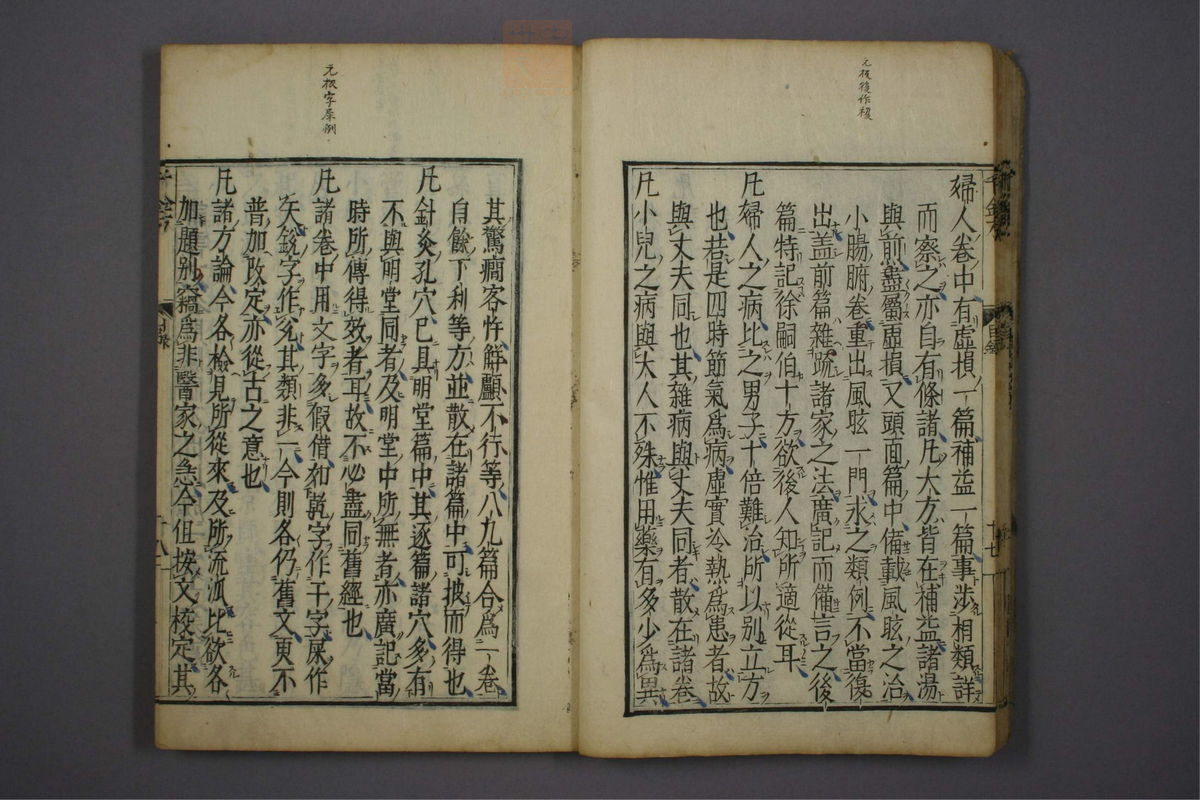 元板後作複
婦人卷中有虛損一篇補益一篇事涉相類詳
而察之亦自有條諸凡大方皆在補益諸湯
與前盡屬虛損又頭面篇中備載風眩之治
小腸腑卷重出風眩一門求之類例不當復
出盖前篇雜疏諸家之法廣記而備言之後
篇特記徐嗣伯十方欲後人知所適從耳
凡婦人之病比之男子十倍難治所以别立方
也若是四時節氣爲病虛實冷熱爲患者故
與丈夫同也其雜病與丈夫同者散在諸卷
凡小兒之病與大人不殊惟用藥有多少爲異
目錄
十七
元板字原例
其驚癇客忤解顱不行等八九篇合爲一卷
自餘下利等方並散在諸篇中可披而得也
凡針灸孔穴已具明堂篇中其逐篇諸穴多有
不與明堂同者及明堂中所無者亦廣記當
時所傳得效者耳故不必盡同舊經也
凡諸卷中用文字多假借如乾字作干字屎作
矢銳字作兊其類非一今則各仍舊文更不
普加改定亦從古之意也
凡諸方論今各檢見所從來及所流派比欲各
加題别竊爲非醫家之急今但按文校定其
目錄
十八